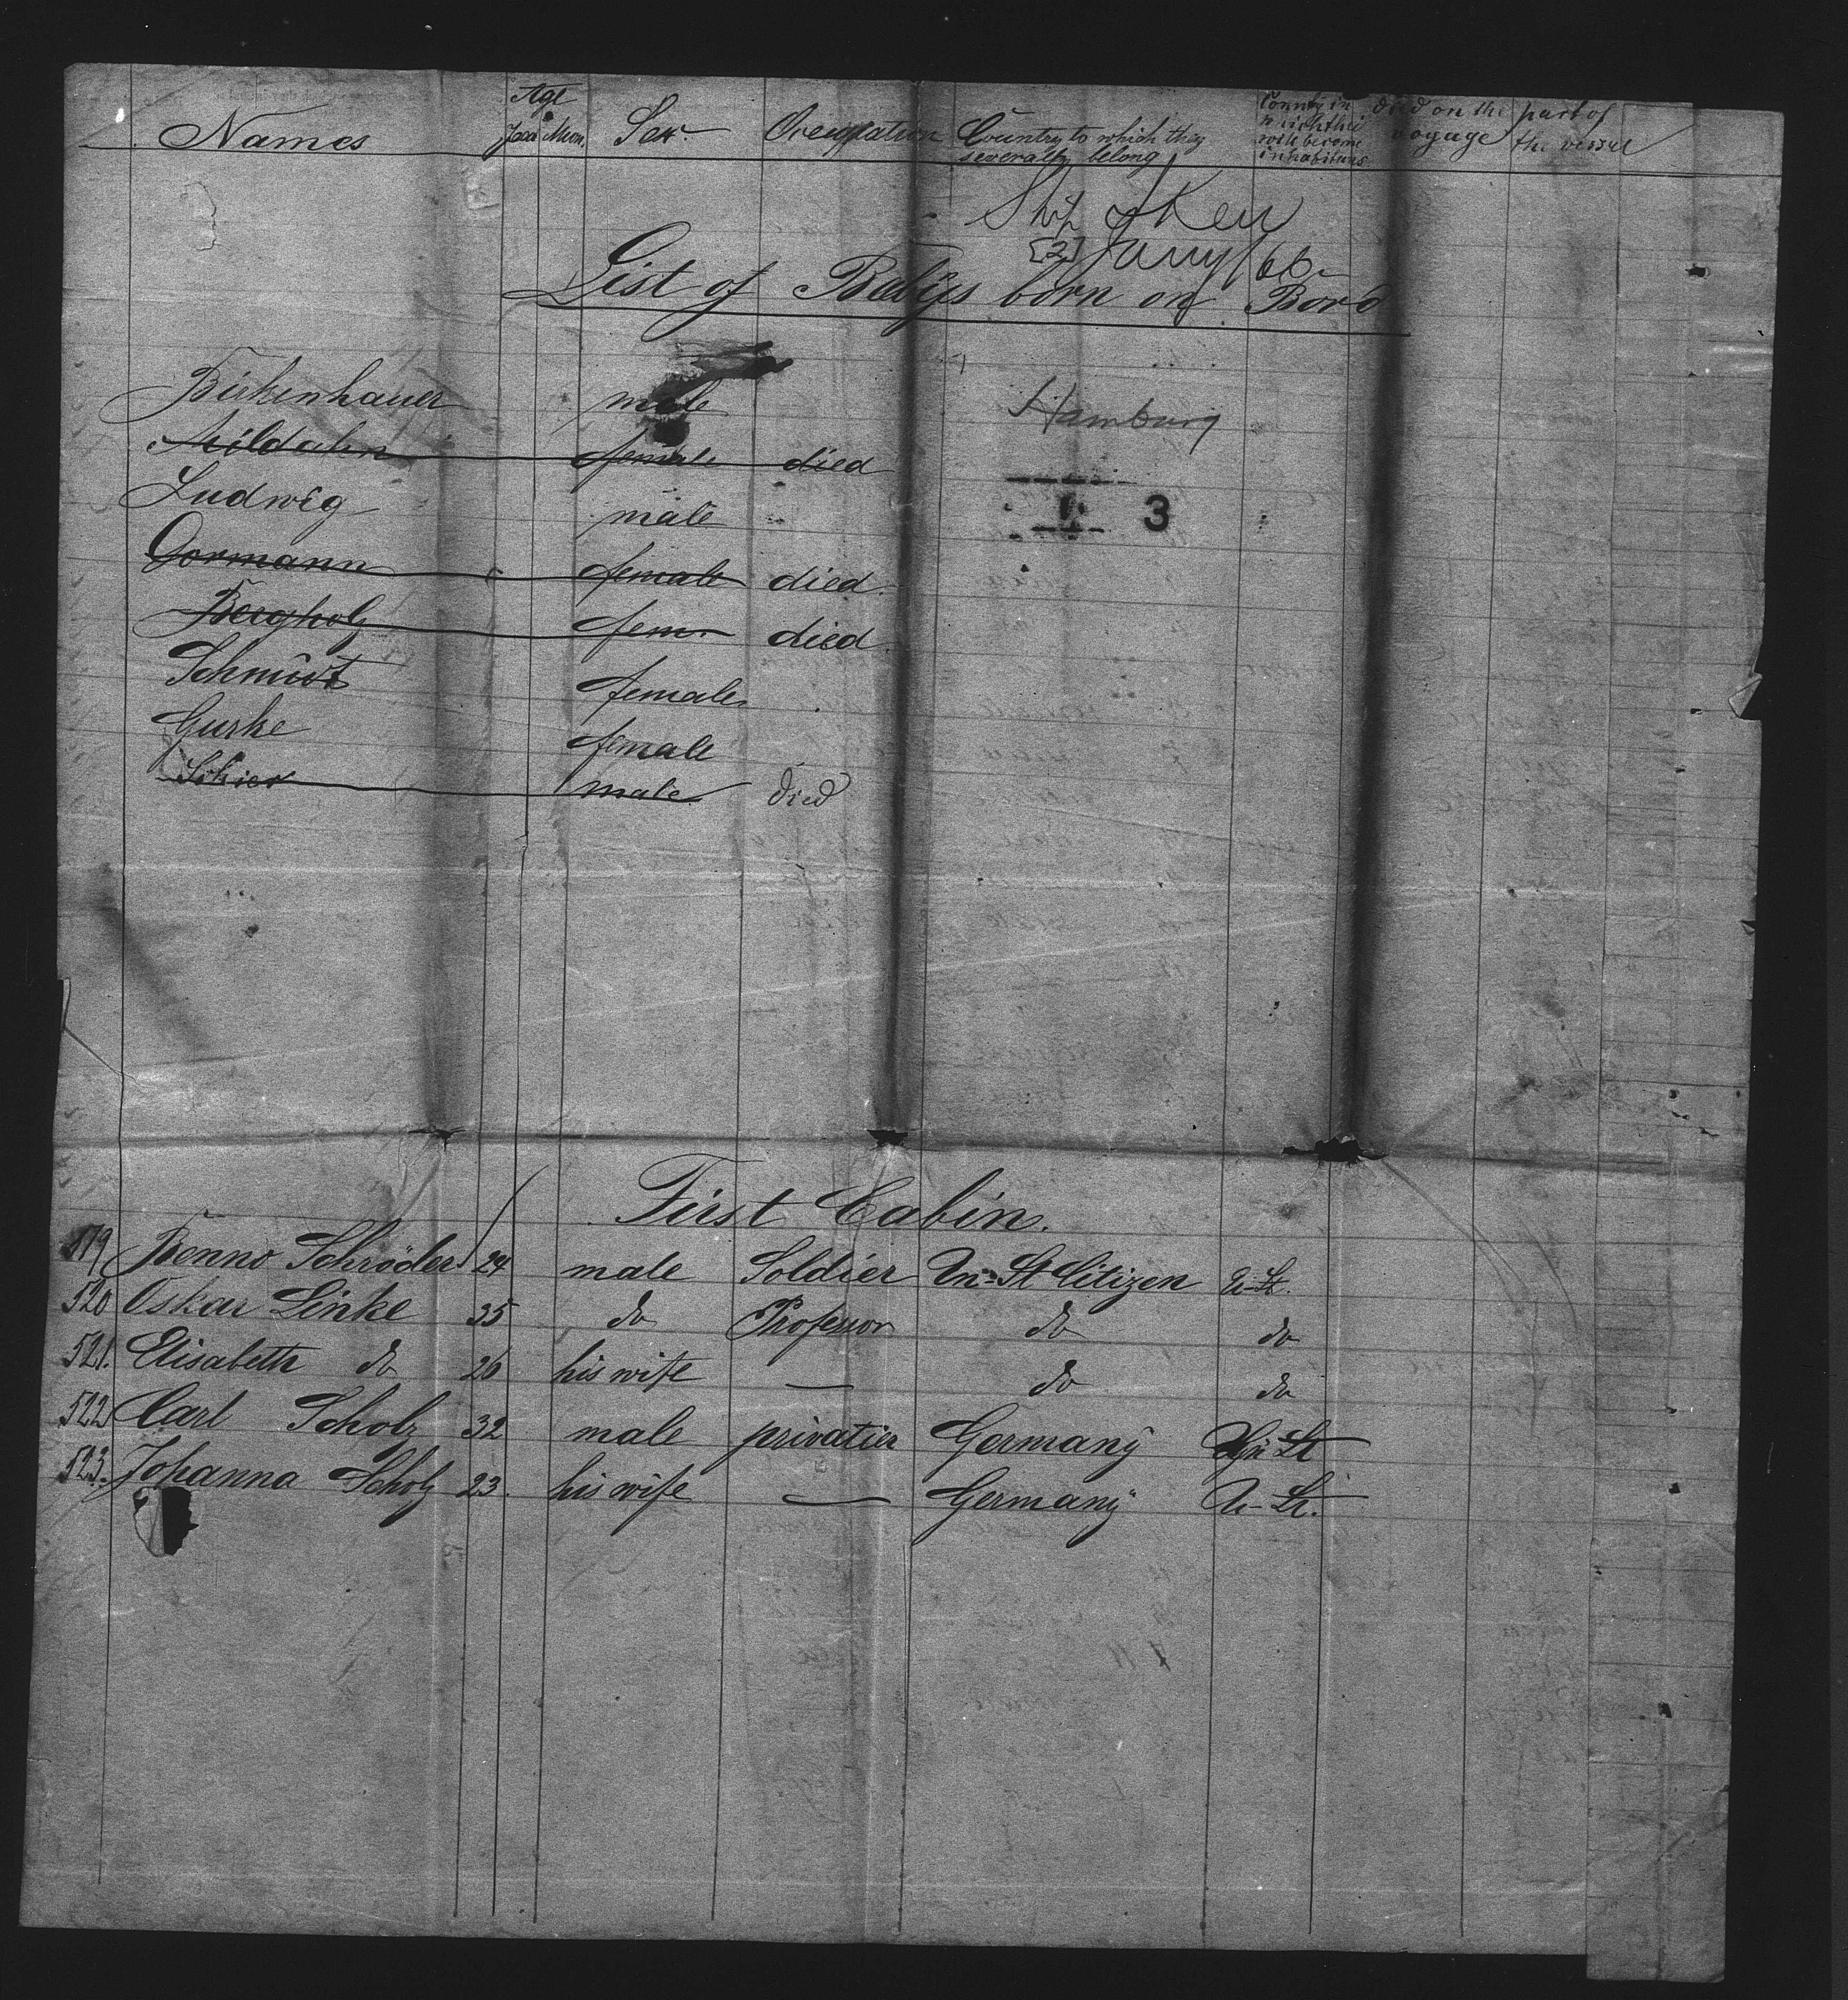 Names Age Sex Occupation Country to which they Country in died on the part of
Mon. severally belong which they voyage the vessel
will become
inhabitans
Ship
[2] Jany / 66
List of Babys born on Bord
Birkenhauer male Hamburg
female died
Ludwig male
3
Gormann female died
Bergholz fem. died
Schmidt female
Gurke female
male died
First Cabin.
519 Benno Schröder 24 male Soldier Un-St Citizen U-St.
520 Oskar Linke 35 do Professor do do
521. Elisabeth do 26 his wife — do do
522 Carl Scholz 32 male privatier Germany Un St
523. Johanna Scholz 23. his wife — Germany U-St.